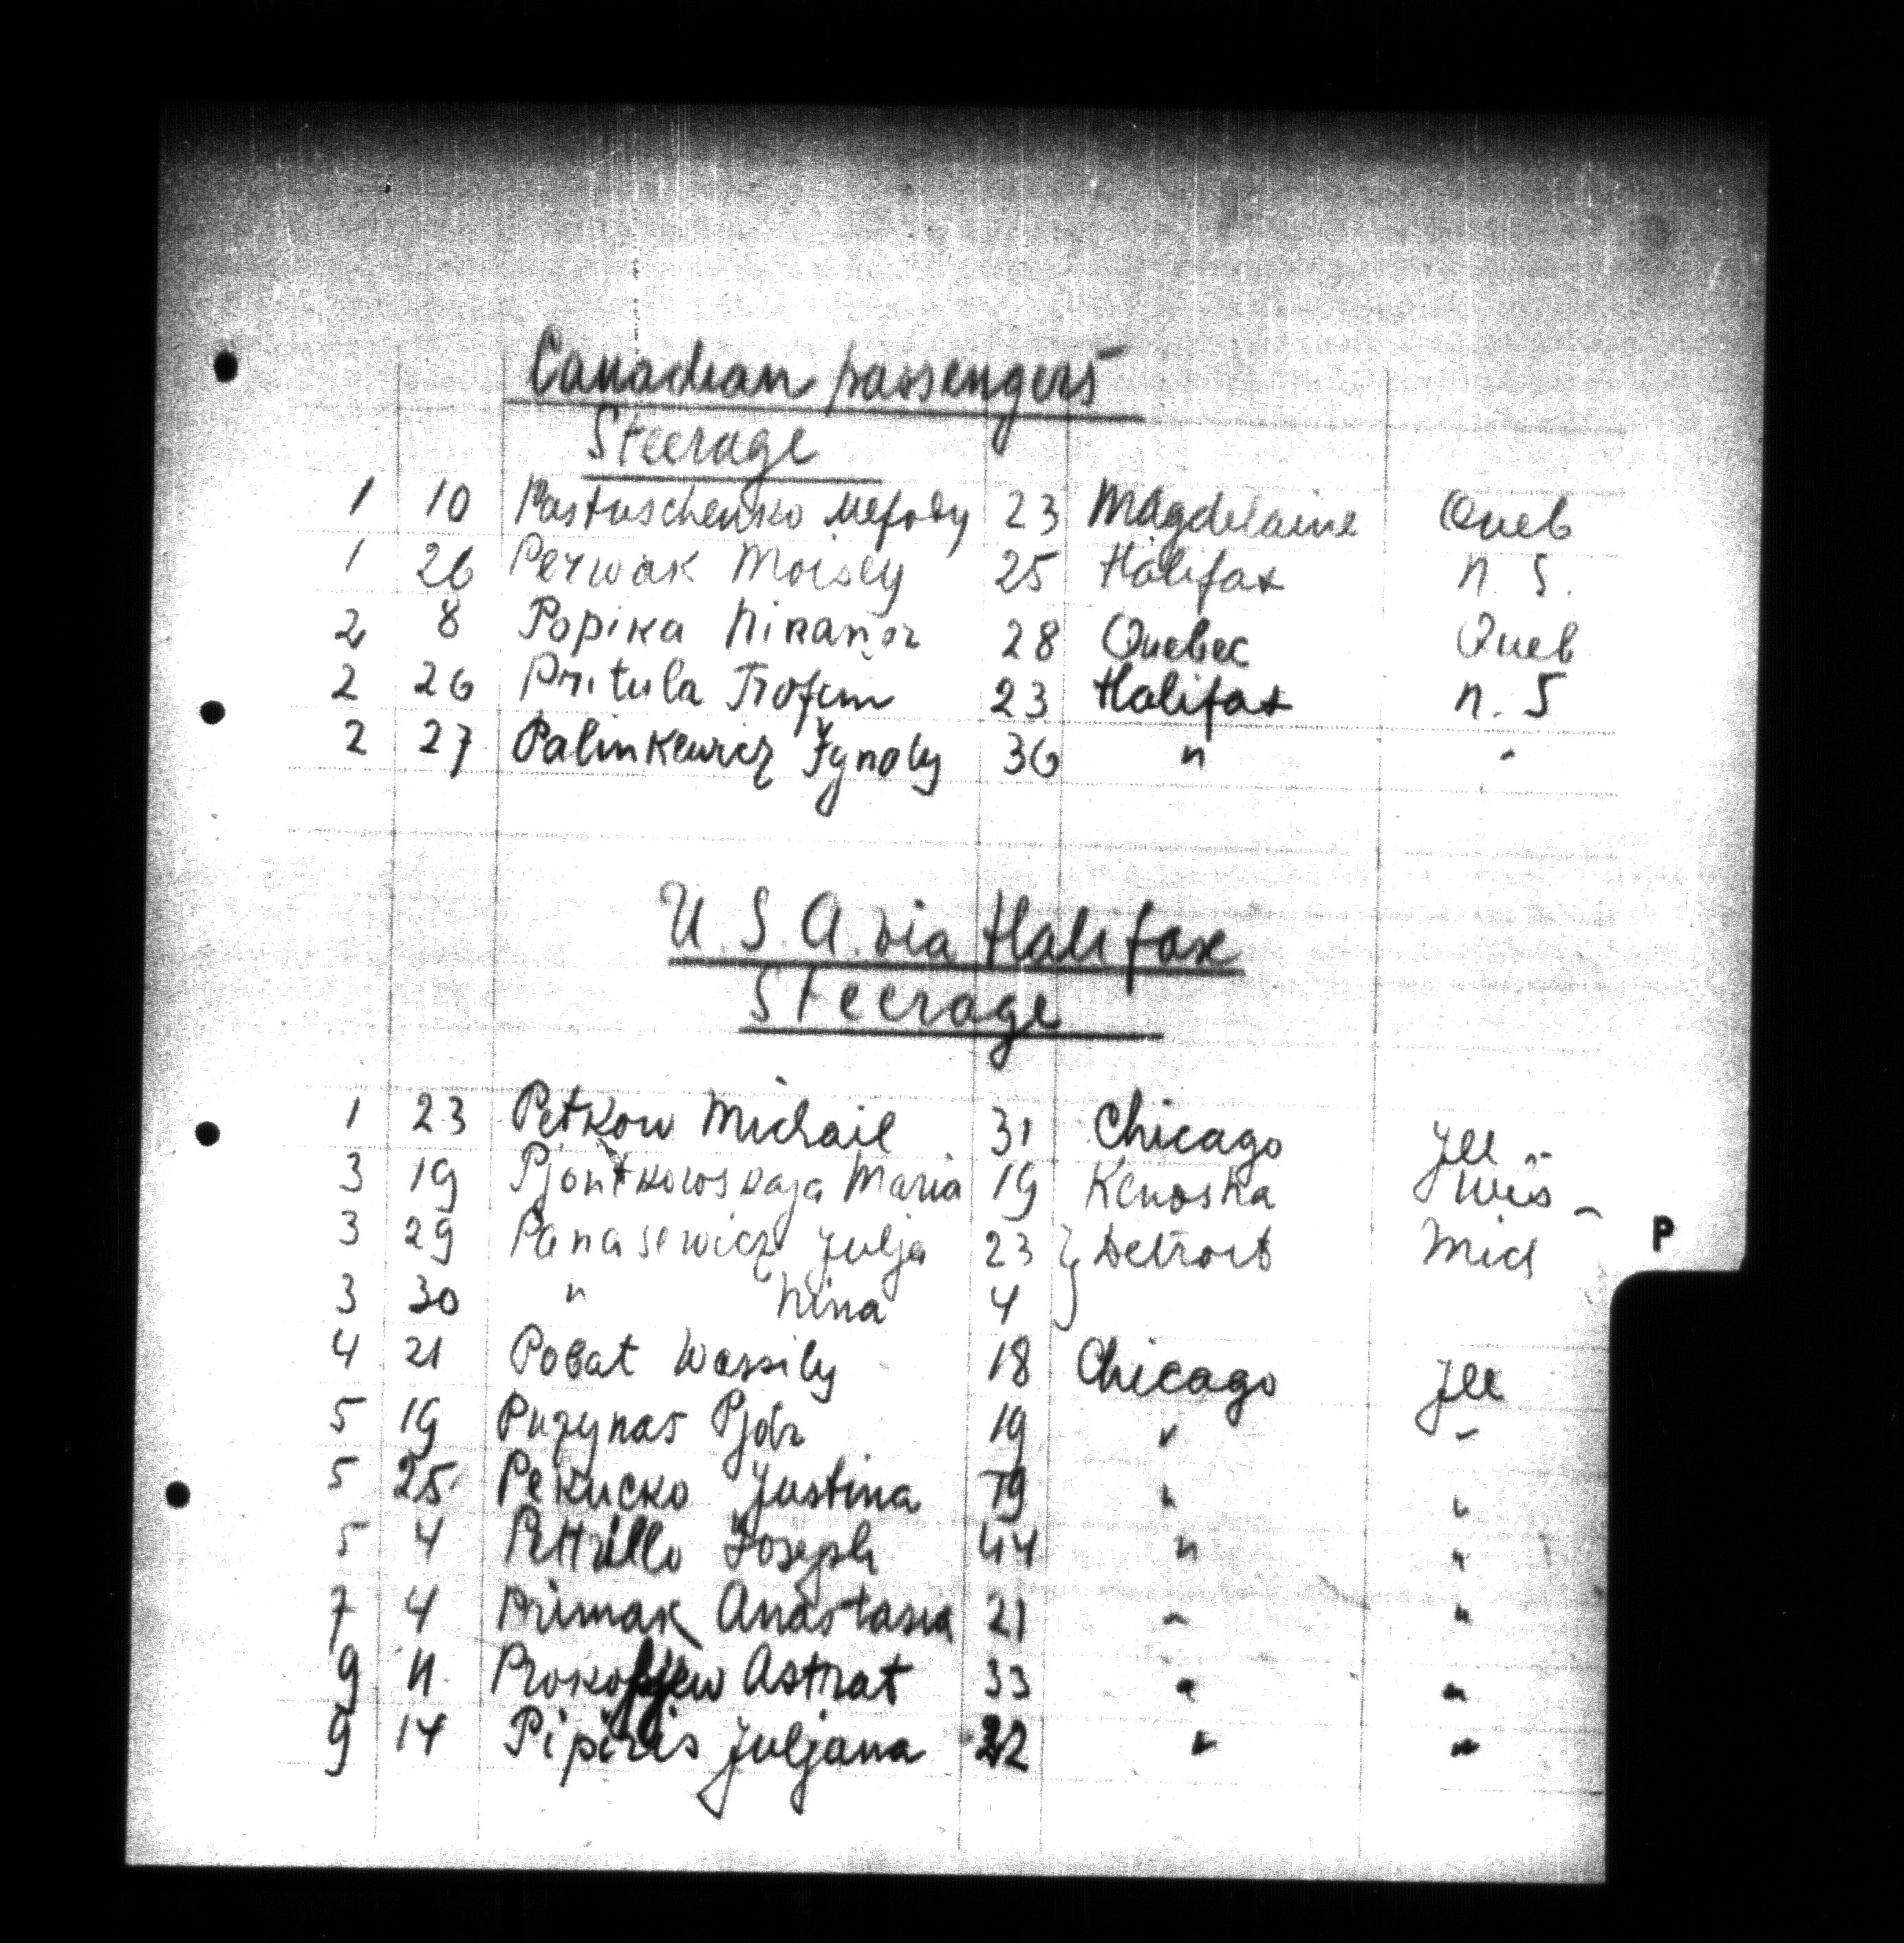 Canadian passengers
Steerage
1 10 Pastuschenko Mefody 23 Magdelaine Queb
1 26 Perwak Moisey 25 Halifax N. S.
2 8 Popika Nikanor 28 Quebec Queb
2 26 Pritula Trofim 23 Halifax N. S
2 27 Palinkewicz Ignaty 36 " "
U. S. A. via Halifax
Steerage
1 23 Petkow Michail 31 Chicago Ill
3 19 Pjontkowskaja Maria 19 Kenosha Wis
3 29 Panasewicz Julja 23 } Detroit Mich
3 30 " Nina 4
4 21 Pobat Wassily 18 Chicago Ill
5 19 Puzynas Pjotr 19 " "
5 25 Pekucko Justina 19 " "
5 4 Pettrillo Joseph 44 " "
7 4 Primak Anastasia 21 " "
9 11 Prokopjew Astrat 33 " "
9 14 Pipiris Juljana 22 " "
P